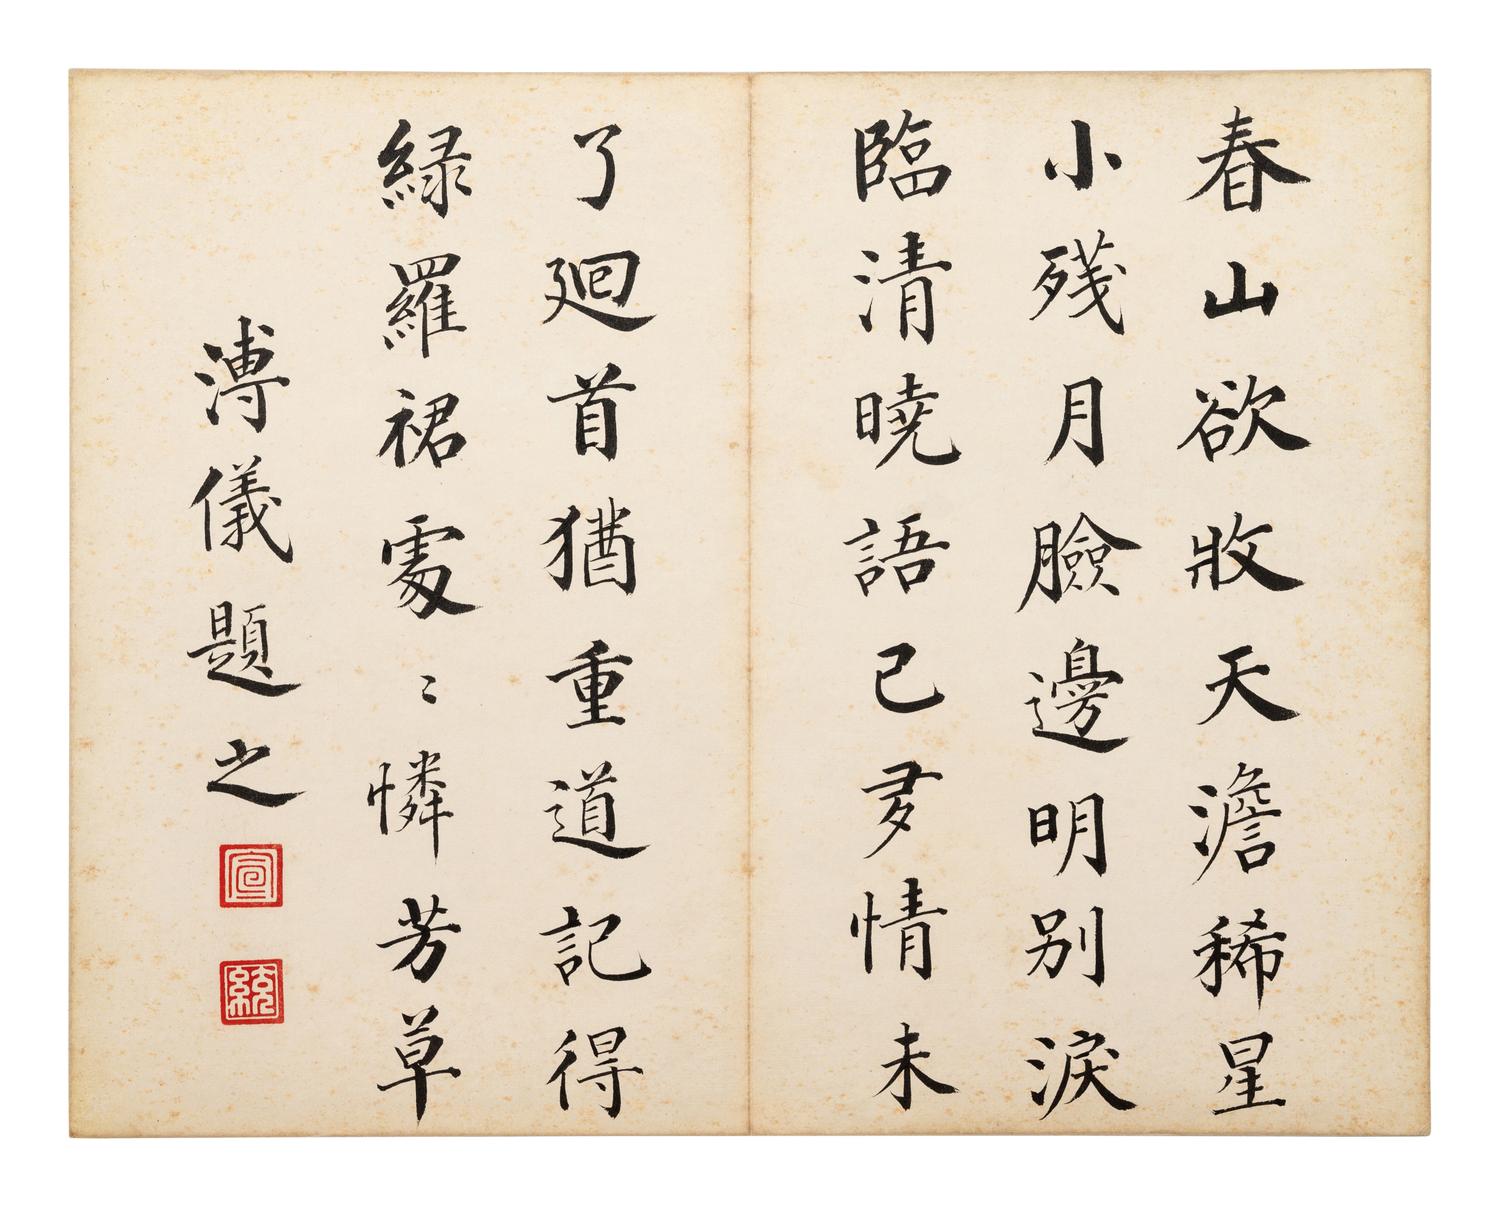 春山欲收天澹稀星
小残月臉邊明别淚
臨清曉語已多情未
了迴首猶重道記得
緑羅裙處〻憐芳草
溥儀題之
宣
統